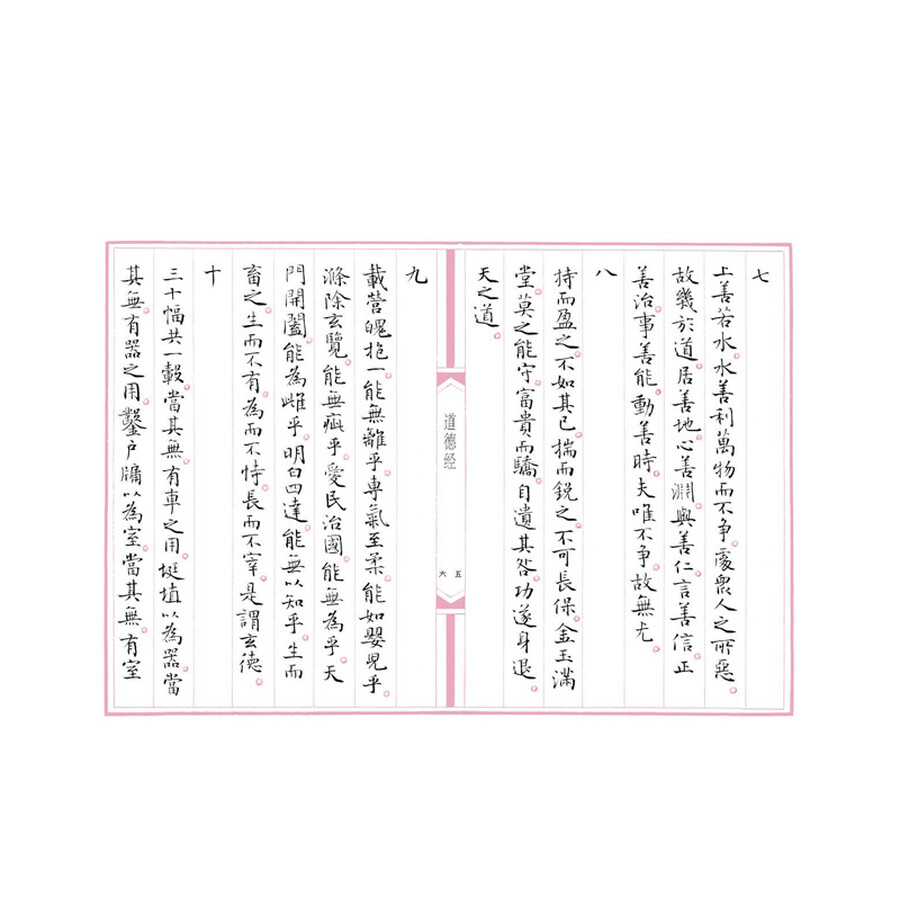 七
上善若水。水善利萬物而不争。處衆人之所惡。
故幾於道。居善地。心善淵。與善仁。言善信。正
善治。事善能。動善時。夫唯不争。故無尤。
八
持而盈之。不如其已。揣而鋭之。不可長保。金玉滿
堂。莫之能守。富貴而驕。自遺其咎。功遂身退。
天之道。
道德经
六 五
九
載營魄抱一。能無離乎。專氣至柔。能如嬰児乎。
滌除玄覽。能無疵乎。愛民治國。能無為乎。天
門開闔。能為雌乎。明白四達。能無以知乎。生而
畜之。生而不有。為而不恃。長而不宰。是謂玄德。
十
三十幅共一轂。當其無。有車之用。埏埴以為器。當
其無。有器之用。鑿户牖以為室。當其無。有室